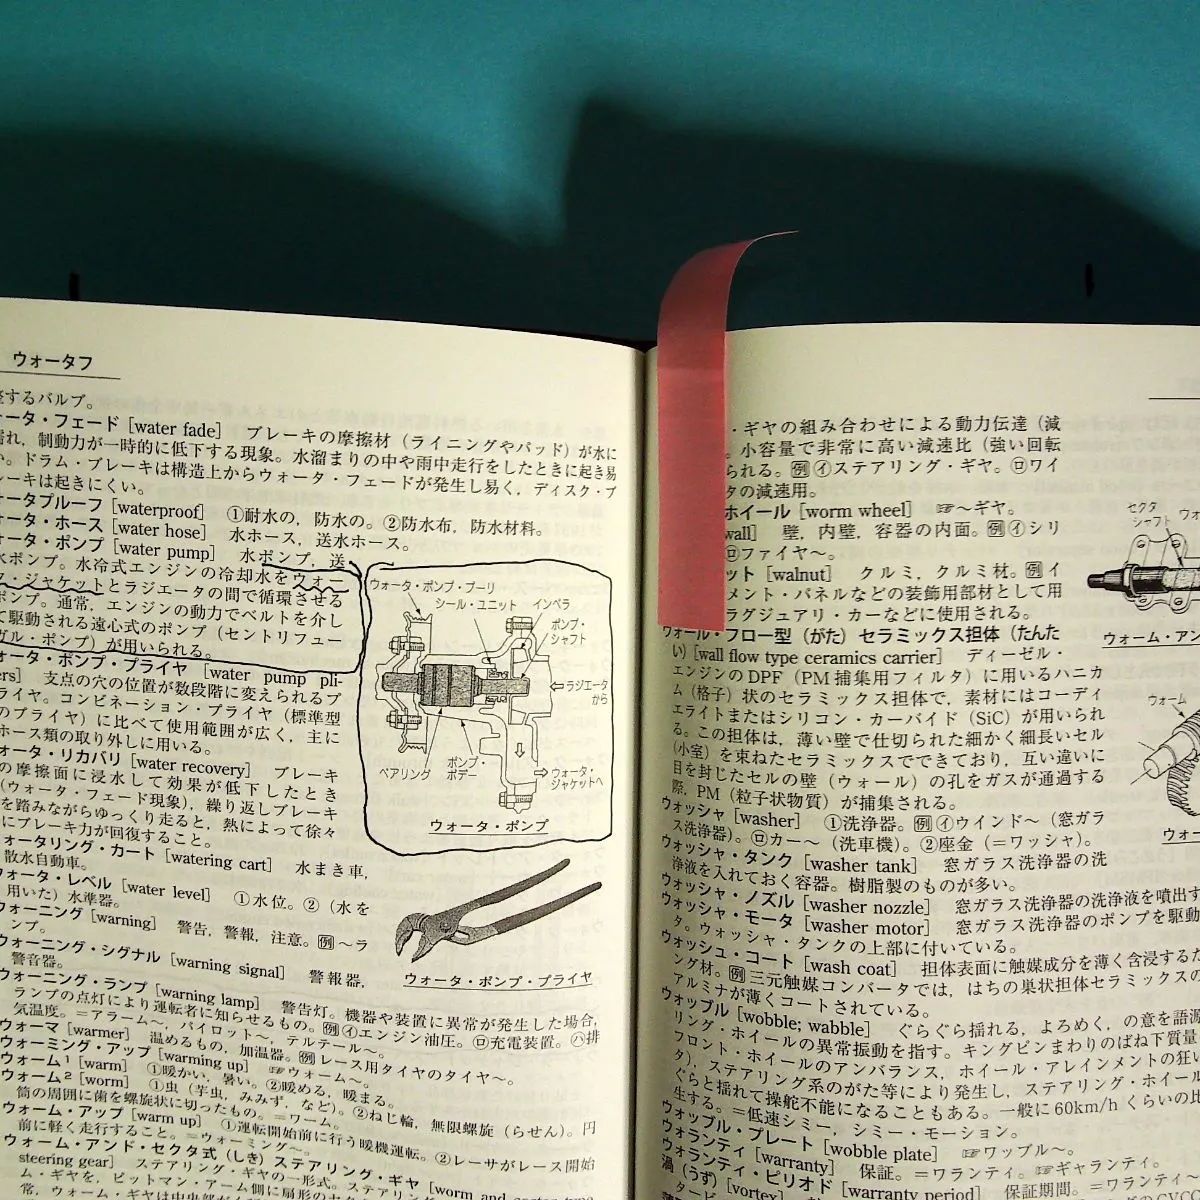 ウォータフ
するバルブ。
ータ・フェード [water fade] ブレーキの摩擦材（ライニングやパッド）が水に
濡れ，制動力が一時的に低下する現象。水溜まりの中や雨中走行をしたときに起き易
い。ドラム・ブレーキは構造上からウォータ・フェードが発生し易く，ディスク・ブ
レーキは起きにくい。
ォータプルーフ [waterproof] ①耐水の，防水の。②防水布，防水材料。
ォータ・ホース [water hose] 水ホース，送水ホース。
ォータ・ポンプ [water pump] 水ポンプ，送
水ポンプ。水冷式エンジンの冷却水をウォー
タ・ジャケットとラジエータの間で循環させる
ポンプ。通常，エンジンの動力でベルトを介し
て駆動される遠心式のポンプ（セントリフュー
ガル・ポンプ）が用いられる。
ウォータ・ポンプ・プーリ
シール・ユニット
インペラ
ポンプ・
シャフト
ラジエータ
から
ベアリング
ポンプ・
ボデー
ウォータ・
ジャケットへ
ウォータ・ポンプ
ォータ・ポンプ・プライヤ [water pump pli-
ers] 支点の穴の位置が数段階に変えられるプ
ライヤ。コンビネーション・プライヤ（標準型
のプライヤ）に比べて使用範囲が広く，主に
ホース類の取り外しに用いる。
ォータ・リカバリ [water recovery] ブレーキ
の摩擦面に浸水して効果が低下したとき
（ウォータ・フェード現象），繰り返しブレーキ
を踏みながらゆっくり走ると，熱によって徐々
にブレーキ力が回復すること。
ォータリング・カート [watering cart] 水まき車，
散水自動車。
ォータ・レベル [water level] ①水位。②（水を
用いた）水準器。
ウォーニング [warning] 警告，警報，注意。例〜ラ
ンプ。
ウォーニング・シグナル [warning signal] 警報器，
警音器。
ウォータ・ポンプ・プライヤ
ウォーニング・ランプ [warning lamp] 警告灯。機器や装置に異常が発生した場合，
ランプの点灯により運転者に知らせるもの。例㋑エンジン油圧。㋺充電装置。㋩排
気温度。＝アラーム〜，パイロット〜，テルテール〜。
ウォーマ [warmer] 温めるもの，加温器。例レース用タイヤのタイヤ〜。
ウォーミング・アップ [warming up] ☞ウォーム〜。
ウォーム1 [warm] ①暖かい，暑い。②暖める，暖まる。
ウォーム2 [worm] ①虫（芋虫，みみず，など）。②ねじ輪，無限螺旋（らせん）。円
筒の周囲に歯を螺旋状に切ったもの。＝ワーム。
ウォーム・アップ [warm up] ①運転開始前に行う暖機運転。②レーサがレース開始
前に軽く走行すること。＝ウォーミング〜。
ウォーム・アンド・セクタ式（しき）ステアリング・ギヤ [worm and sector type
steering gear] ステアリング・ギヤの一形式。ステアリング・
ム・ギヤを，ピットマン・アーム側に扇形の
・ギヤの組み合わせによる動力伝達（減
小容量で非常に高い減速比（強い回転
られる。例㋑ステアリング・ギヤ。㋺ワイ
タの減速用。
ホイール [worm wheel] ☞〜ギヤ。
wall] 壁，内壁，容器の内面。例㋑シリ
㋺ファイヤ〜。
ット [walnut] クルミ，クルミ材。例イ
メント・パネルなどの装飾用部材として用
ラグジュアリ・カーなどに使用される。
ウォール・フロー型（がた）セラミックス担体（たんた
い）[wall flow type ceramics carrier] ディーゼル・
エンジンの DPF（PM 捕集用フィルタ）に用いるハニカ
ム（格子）状のセラミックス担体で，素材にはコーディ
エライトまたはシリコン・カーバイド（SiC）が用いられ
る。この担体は，薄い壁で仕切られた細かく細長いセル
（小室）を束ねたセラミックスでできており，互い違いに
目を封じたセルの壁（ウォール）の孔をガスが通過する
際，PM（粒子状物質）が捕集される。
セクタ
シャフト
ウォーム・アン
ウォーム
ウォッシャ [washer] ①洗浄器。例㋑ウインド〜（窓ガラ
ス洗浄器）。㋺カー〜（洗車機）。②座金（＝ワッシャ）。
ウォッシャ・タンク [washer tank] 窓ガラス洗浄器の洗
浄液を入れておく容器。樹脂製のものが多い。
ウォッシャ・ノズル [washer nozzle] 窓ガラス洗浄器の洗浄液を噴出す
ウォッシャ・モータ [washer motor] 窓ガラス洗浄器のポンプを駆動
タ。ウォッシャ・タンクの上部に付いている。
ウォッシュ・コート [wash coat] 担体表面に触媒成分を薄く含浸するた
ング材。例三元触媒コンバータでは，はちの巣状担体セラミックスの
アルミナが薄くコートされている。
ウォッブル [wobble; wabble] ぐらぐら揺れる，よろめく，の意を語源
リング・ホイールの異常振動を指す。キングピンまわりのばね下質量
フロント・ホイールのアンバランス，ホイール・アレインメントの狂い
タ），ステアリング系のがた等により発生し，ステアリング・ホイール
ぐらと揺れて操舵不能になることもある。一般に 60km/h くらいの比
生する。＝低速シミー，シミー・モーション。
ウォッブル・プレート [wobble plate] ☞ワッブル〜。
ウォランティ [warranty] 保証。＝ワランティ。☞ギャランティ。
ウォランティ・ピリオド [warranty period] 保証期間。＝ワランティ〜
渦（うず）[vortex]